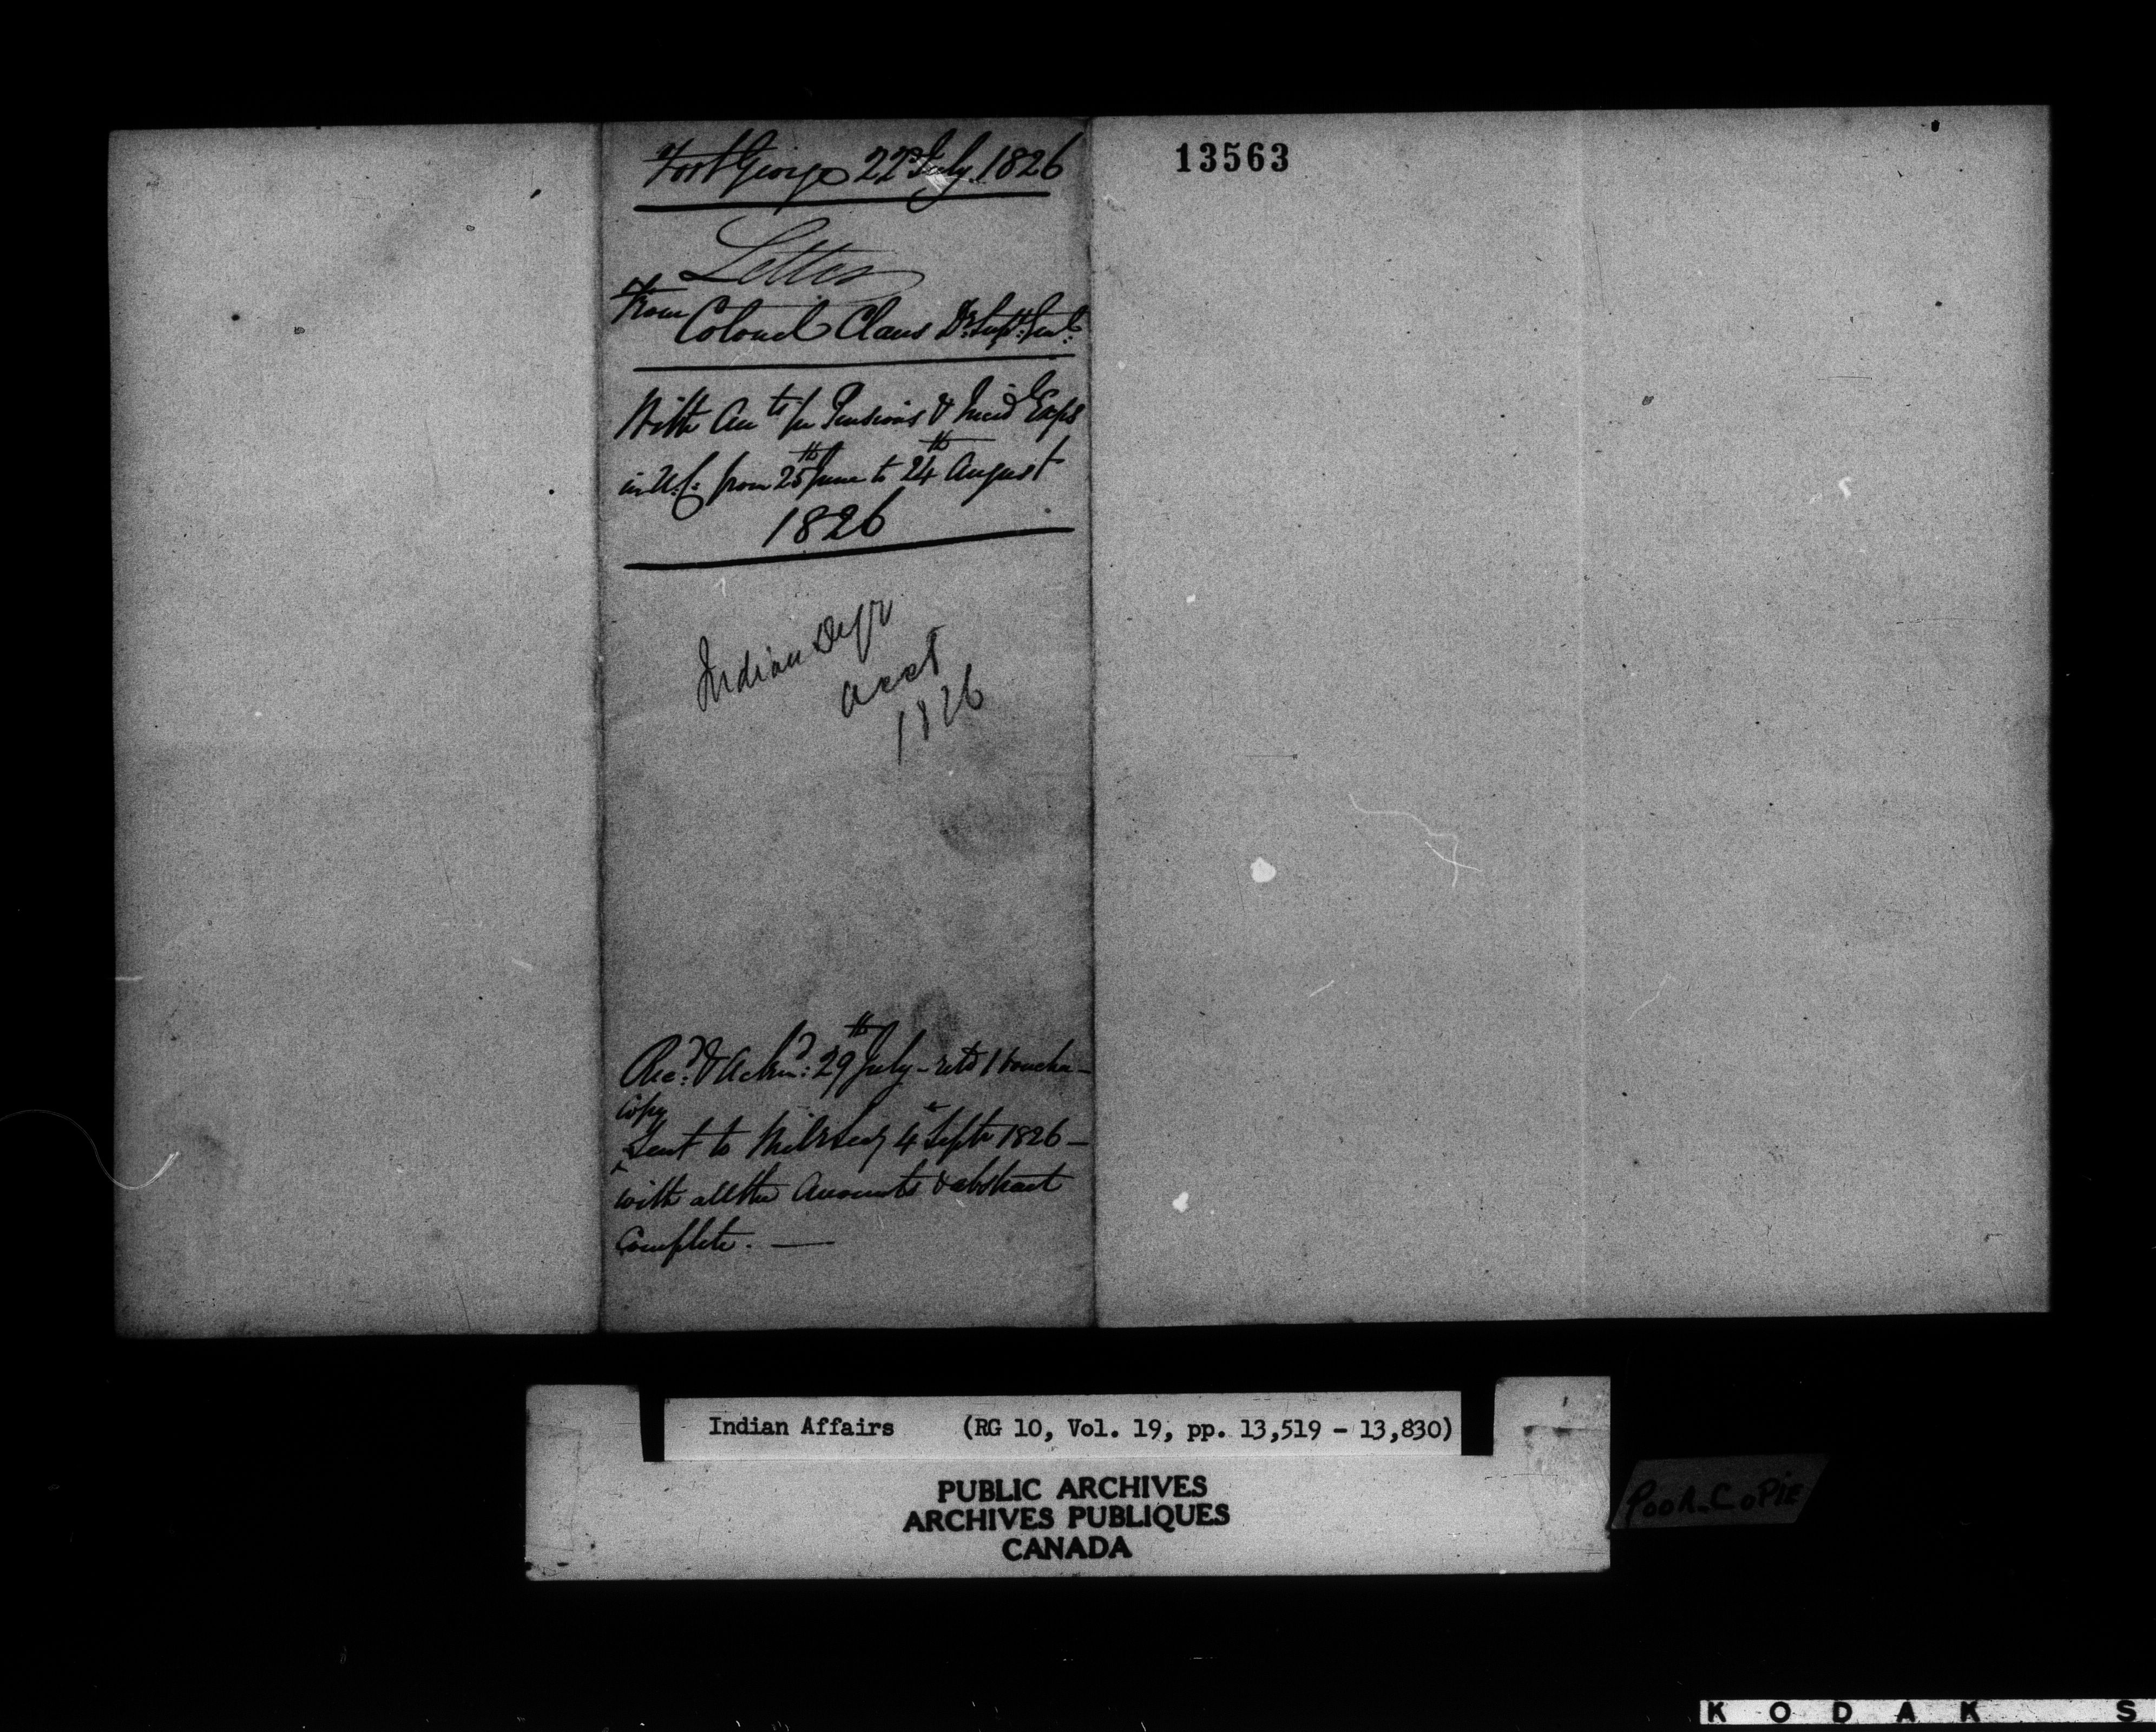 Fort George 22d July 1826
Letter
From
Colonel Claus Dy. Supt. Genl.
With Accts for Pensions & Incidl Exps
in U.C. from 25th June to 24th August
1826
Indian Dept
acct
1826
Recd. & Ackn'd: 29th July - retd 1 voucher -
Copy
Sent to Mily Secy 4th Septr 1826 -
with all the Accounts & abstract
Complete. -
13563
Indian Affairs (RG 10, Vol. 19, pp. 13,519 - 13,830)
PUBLIC ARCHIVES
ARCHIVES PUBLIQUES
CANADA
POOR COPIE
KODAK S